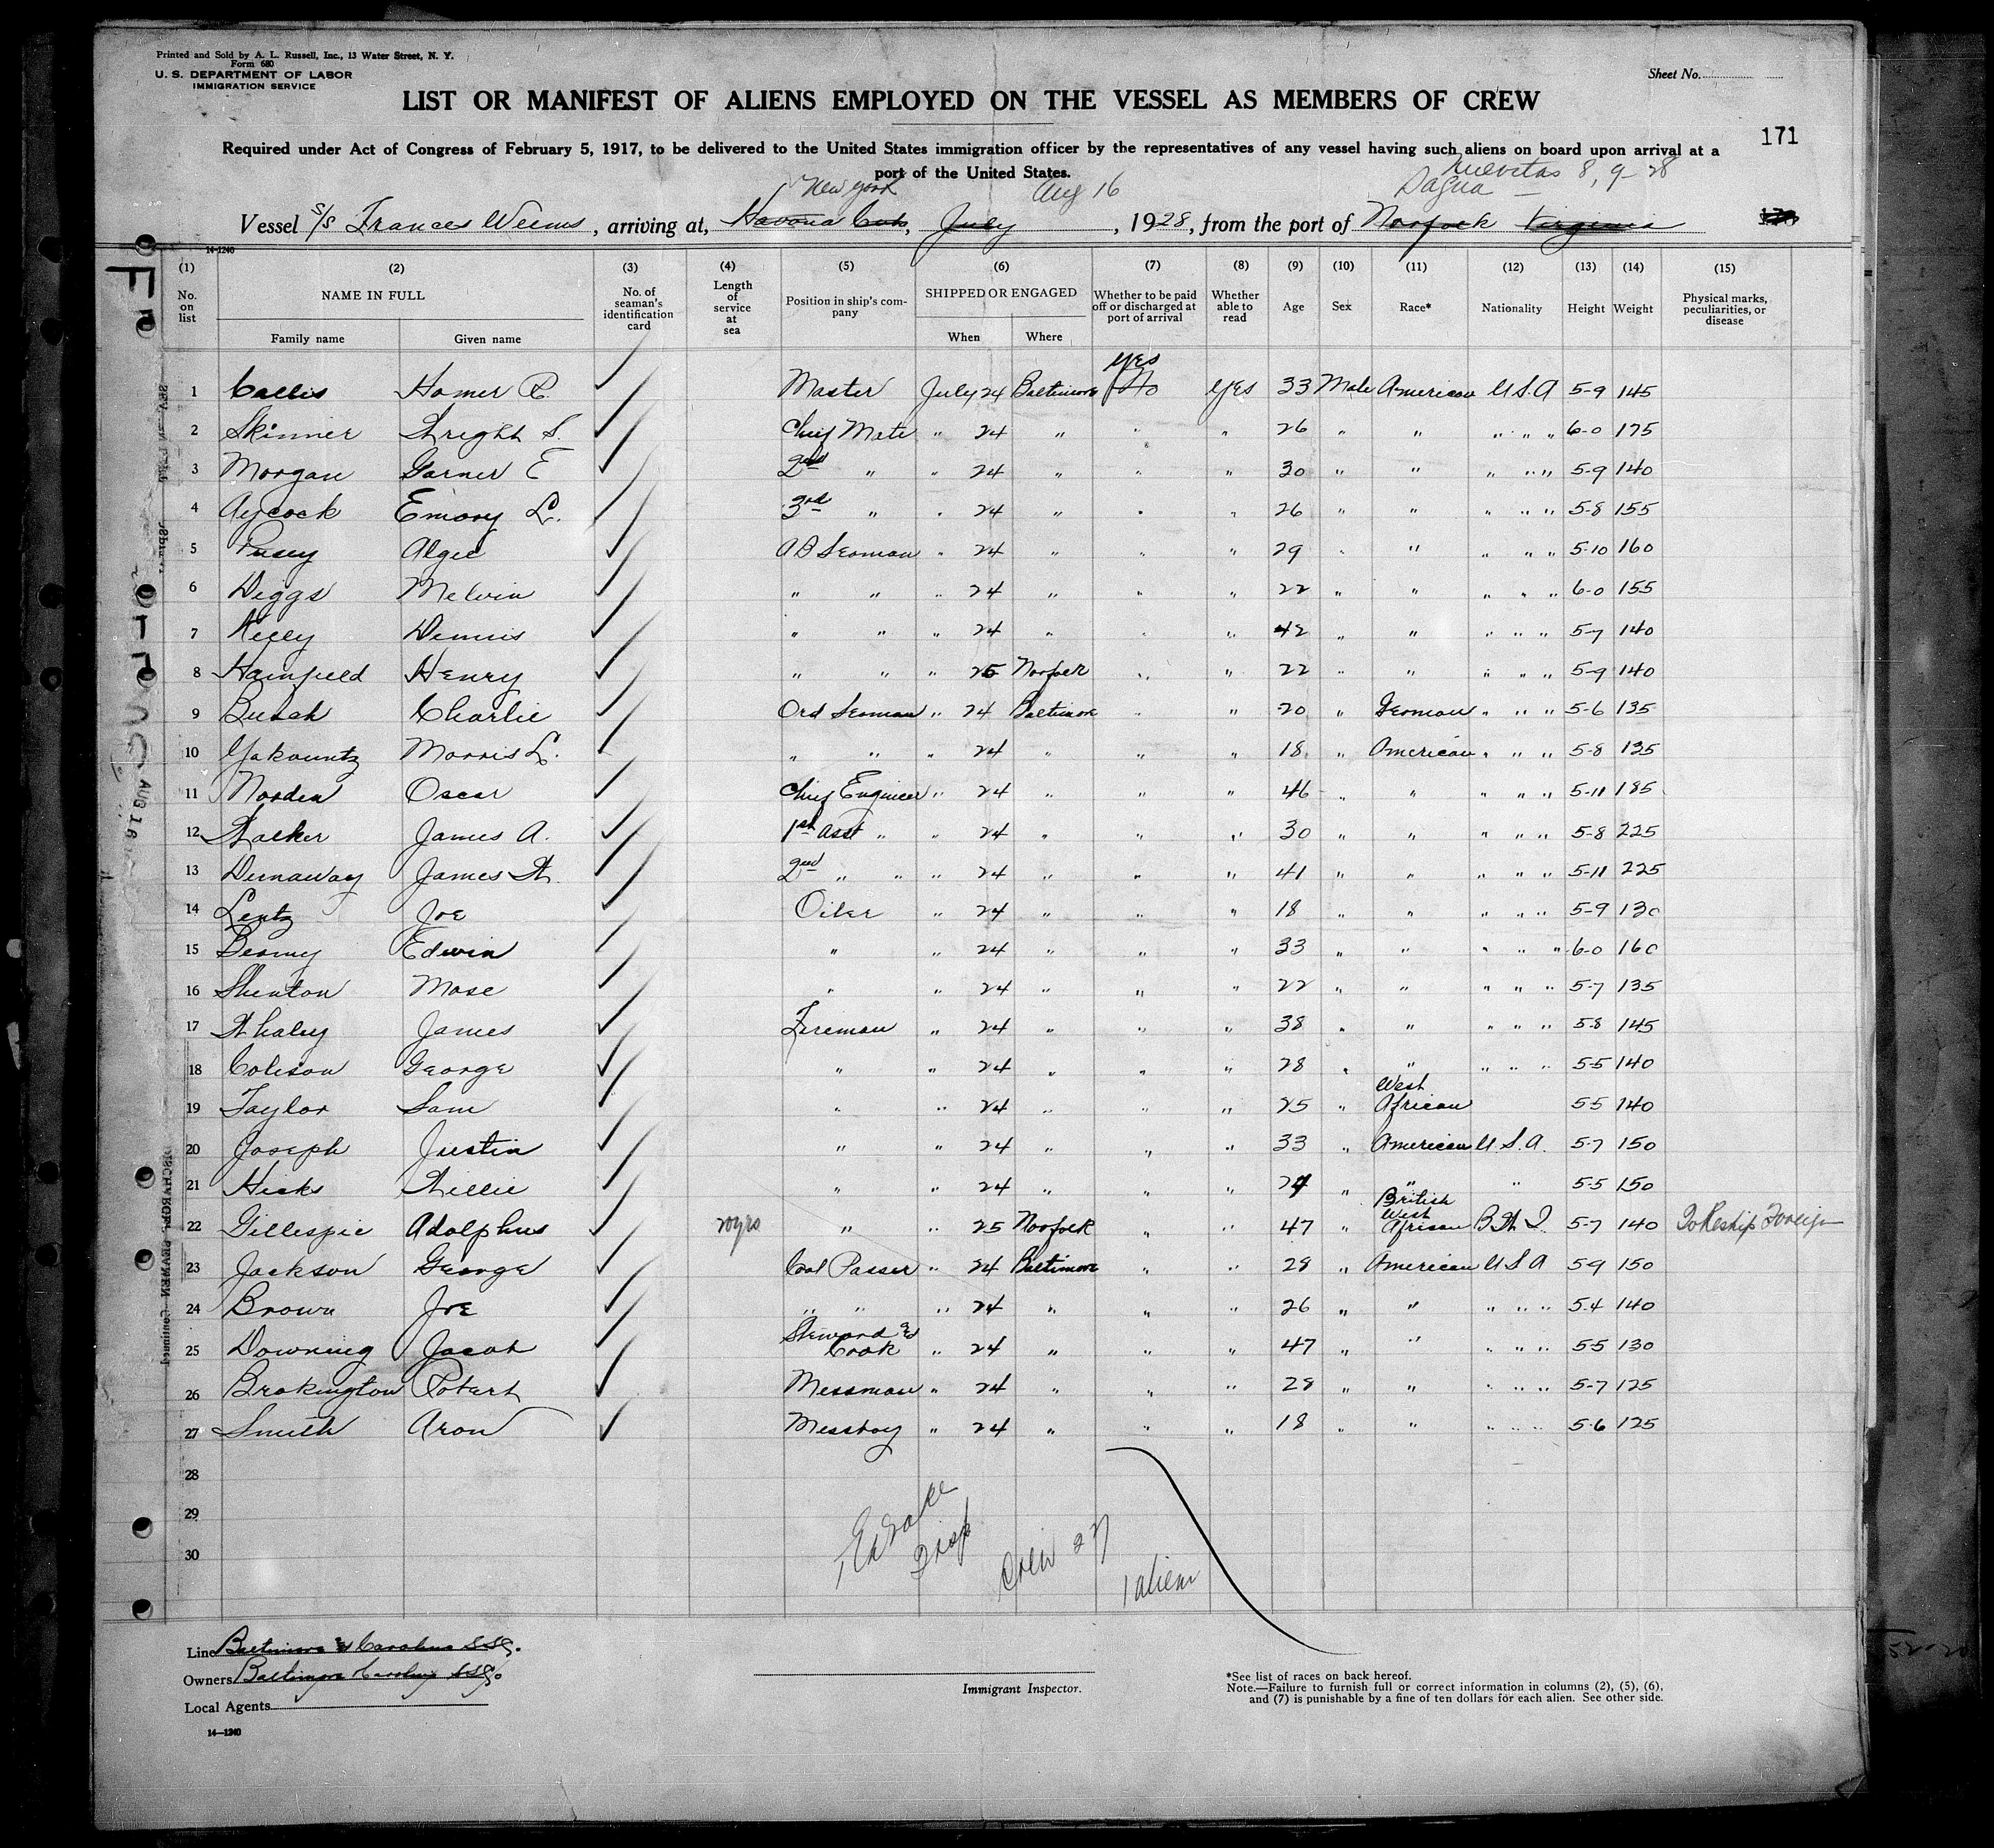 Printed and Sold by A. L. Russell, Inc., 13 Water Street, N. Y.
Form 680
U. S. DEPARTMENT OF LABOR
IMMIGRATION SERVICE
Sheet No.
LIST OR MANIFEST OF ALIENS EMPLOYED ON THE VESSEL AS MEMBERS OF CREW
171
Required under Act of Congress of February 5, 1917, to be delivered to the United States immigration officer by the representatives of any vessel having such aliens on board upon arrival at a
port of the United States.
Nuevitas 8, 9-28
New York Aug 16 Sagua
Vessel S/S Frances Weems, arriving at, Havana Cuba, July, 1928, from the port of Norfolk Virginia
14-1240
(1) (2) (3) (4) (5) (6) (7) (8) (9) (10) (11) (12) (13) (14) (15)
No. on list NAME IN FULL Family name Given name No. of seaman's identification card Length of service at sea Position in ship's company SHIPPED OR ENGAGED When Where Whether to be paid off or discharged at port of arrival Whether able to read Age Sex Race* Nationality Height Weight Physical marks, peculiarities, or disease
yes
1 Callis Homer R. Master July 24 Baltimore No yes 33 Male American U.S.A 5-9 145
2 Skinner Wright S. Chief Mate " 24 " " " 26 " " " " " 6-0 175
3 Morgan Garner E 2nd " " 24 " " " 30 " " " " " 5-9 140
4 Aycock Emory L. 3rd " " 24 " " " 26 " " " " " 5-8 155
5 Pusey Algie AB Seaman " 24 " " " 29 " " " " " 5-10 160
6 Diggs Melvin " " " 24 " " " 22 " " " " " 6-0 155
7 Kelly Dennis " " " 24 " " " 42 " " " " " 5-7 140
8 Hainfield Henry " " " 25 Norfolk " " 22 " " " " " 5-9 140
9 Busch Charlie Ord Seaman " 24 Baltimore " " 20 " German " " " 5-6 135
10 Yakountz Morris L. " " " 24 " " " 18 " American " " " 5-8 135
11 Norden Oscar Chief Engineer " 24 " " " 46 " " " " " 5-11 185
12 Walker James A. 1st Asst " " 24 " " " 30 " " " " " 5-8 225
13 Dunaway James W. 2nd " " " 24 " " " 41 " " " " " 5-11 225
14 Lentz Joe Oiler " 24 " " " 18 " " " " " 5-9 130
15 Edwin " " 24 " " " 33 " " " " " 6-0 160
16 Shenton Mose " " 24 " " " 22 " " " " " 5-7 135
17 Whaley James Fireman " 24 " " " 38 " " " " " 5-8 145
18 Colison George " " 24 " " " 28 " " " " " 5-5 140
West
19 Taylor Sam " " 24 " " " 25 " African 5-5 140
20 Joseph Justin " " 24 " " " 33 " American U.S.A. 5-7 150
21 Hicks Willie " " 24 " " " 24 " " " 5-5 150
British
West
22 Gillespie Adolphus 20yrs " " 25 Norfolk " " 47 " African B.W.I. 5-7 140 To Reship Foreign
23 Jackson George Coal Passer " 24 Baltimore " " 28 " American U S A 5-9 150
24 Brown Joe " " " 24 " " " 26 " " " " " 5-4 140
25 Downing Jacob Steward & Cook " 24 " " " 47 " " " " " 5-5 130
26 Brokington Robert Messman " 24 " " " 28 " " " " " 5-7 125
27 Smith Aron Messboy " 24 " " " 18 " " " " " 5-6 125
28
29
30
Crew 27
1 alien
Line Baltimore & Carolina S.S.Co.
Owners Baltimore Carolina S.S.Co.
Local Agents
14—1240
Immigrant Inspector.
*See list of races on back hereof.
Note.—Failure to furnish full or correct information in columns (2), (5), (6),
and (7) is punishable by a fine of ten dollars for each alien. See other side.
AUG 16